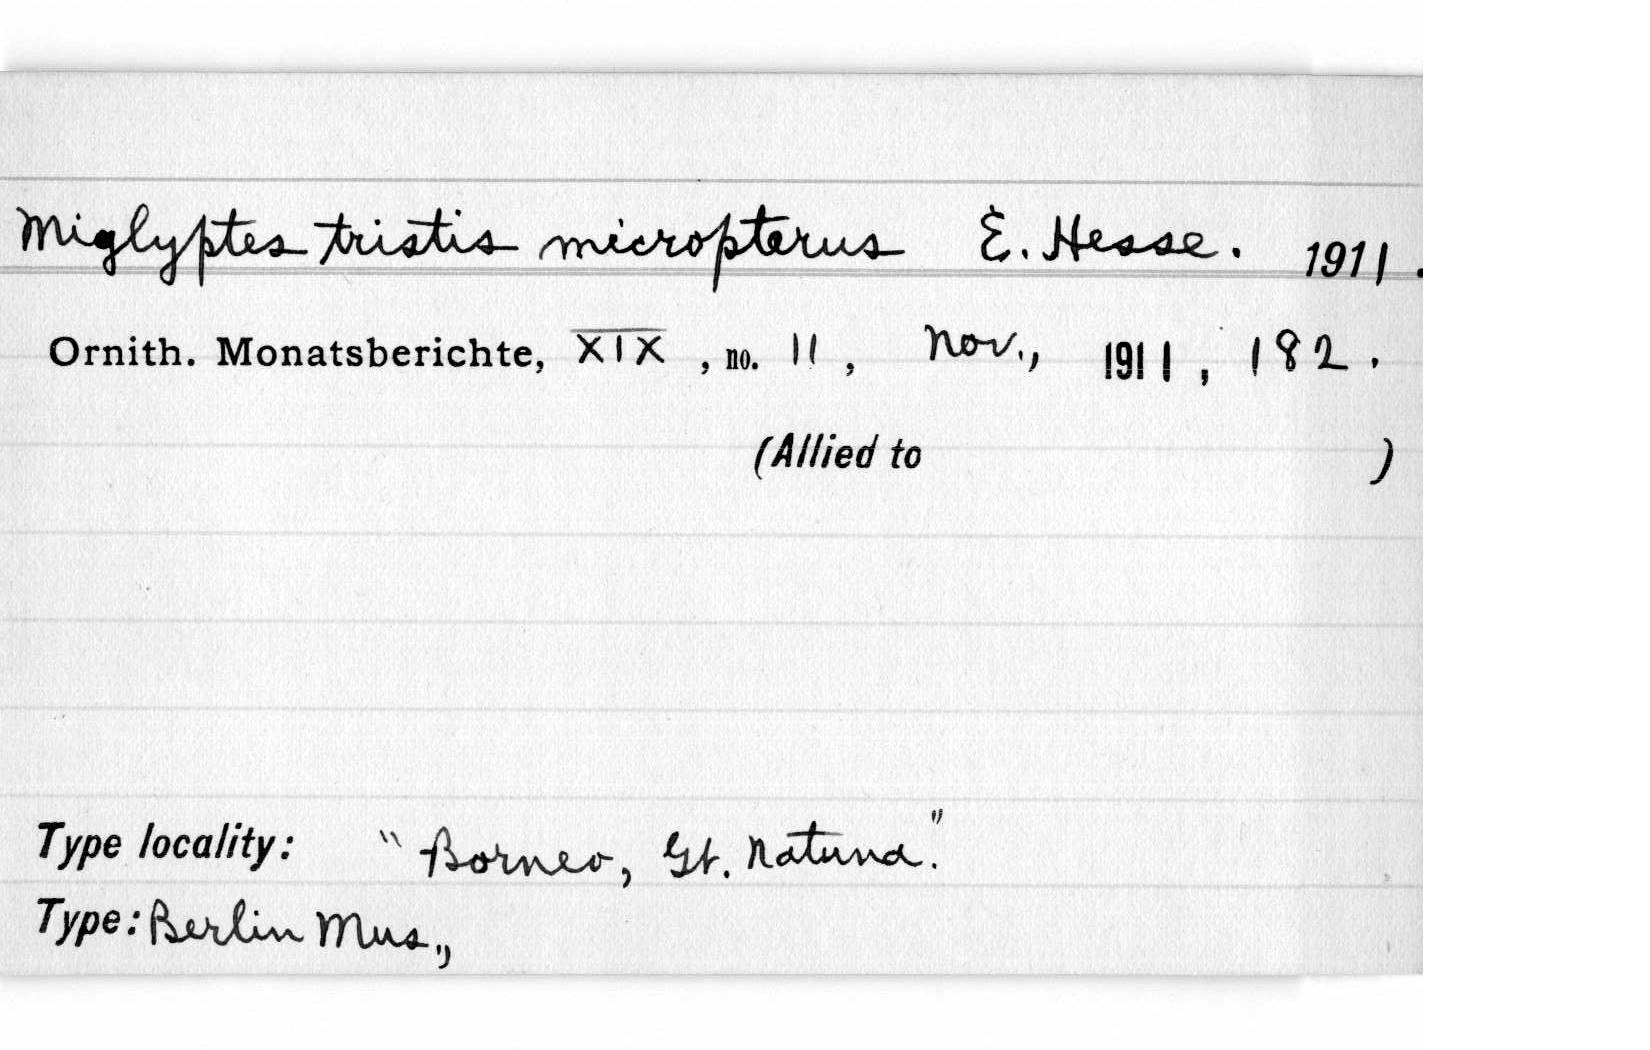 Miglyptes tristis micropterus E. Hesse. 1911.
Ornith. Monatsberichte, XIX, no. 11, Nov., 1911, 182.
(Allied to )
Type locality: "Borneo, Gt. Natuna."
Type: Berlin Mus.,